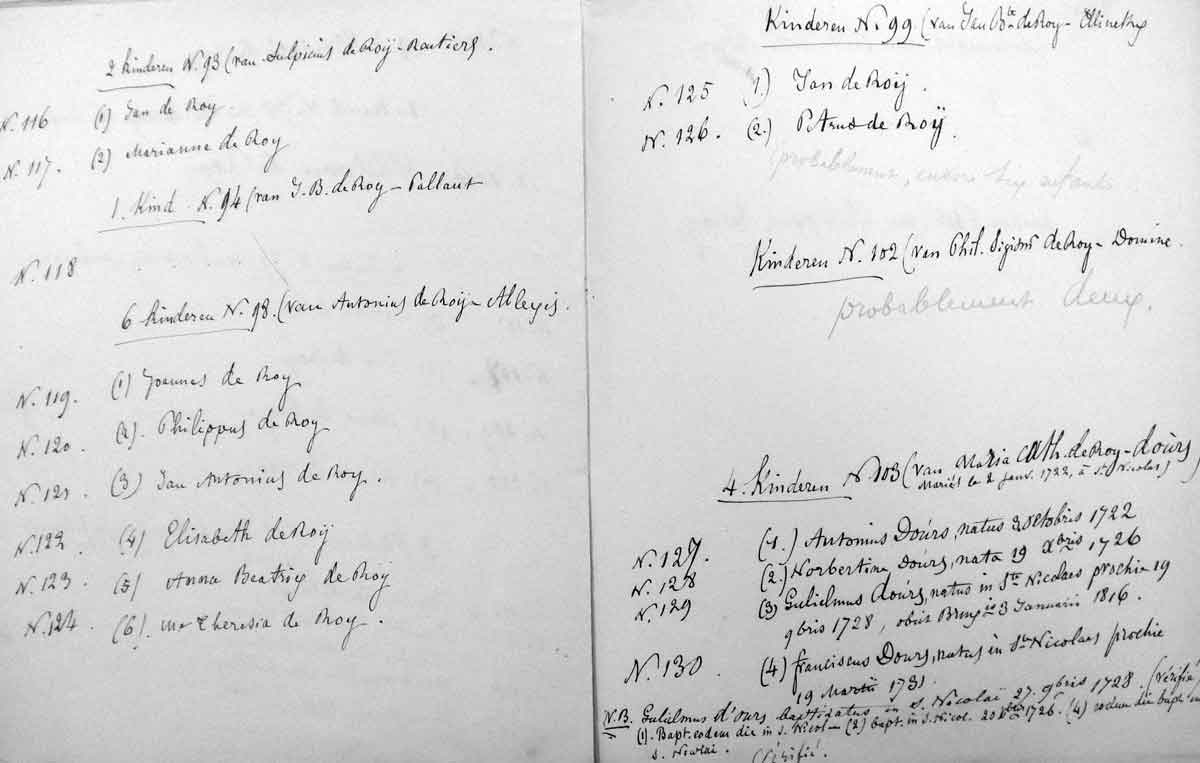 2 kinderen N. 93 (van Sulpicius de Roÿ-Rautiers.
N. 116 (1) Jan de Roy
N. 117. (2) Marianne de Roy
1. Kind N. 94 (van J. B. de Roy - Pallaut
N. 118
6 kinderen N. 98. (van Antonius de Roÿ -
N. 119. (1) Joannes de Roy
N. 120. (2). Philippus de Roy
N. 121. (3) Jan Antonius de Roy.
N. 122 (4) Elisabeth de Roÿ
N. 123. (5) Anna Beatrix de Roÿ
N. 124. (6). Theresia de Roy.
Kinderen N. 99 (van Jan Bte de Roy -
N. 125 (1.) Jan de Roÿ.
N. 126. (2.) de Roÿ.
(probablement, encore six enfants
Kinderen N. 102 (van Phil. Sigism de Roy - Domine.
probablement deux.
4. Kinderen N. 103 (van Maria Cath. de Roy - doùrs)
Mariés le 2 janv. 1722, à St Nicolas)
N. 127. (1.) Antonius Doúrs, natus 3 Octobris 1722
N. 128 (2.) Norbertina Doúrs, nata 19 Xbris 1726
N. 129 (3) Gulielmus doúrs, natus in Ste Nicolaes prochie 19
9bris 1728, obiit 3 Januarii 1816.
N. 130 (4) franciscus Dours, natus in St Nicolaes prochie
19 Martii 1731.
N.B. Gulielmus d'ours baptizatus in S. Nicolaï 27. 9bris 1728. (Vérifié)
(1). Bapt. eodem die in S. Nicol - (2) bapt. in S. Nicol. 20 Xbris 1726. (4) eodem die bapt. in
S. Nicolai. (Vérifié.